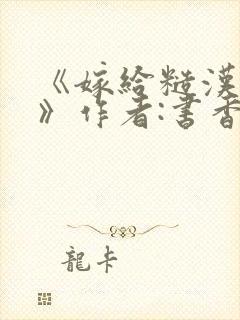 《嫁给糙漢
》作者:書香
龍卡